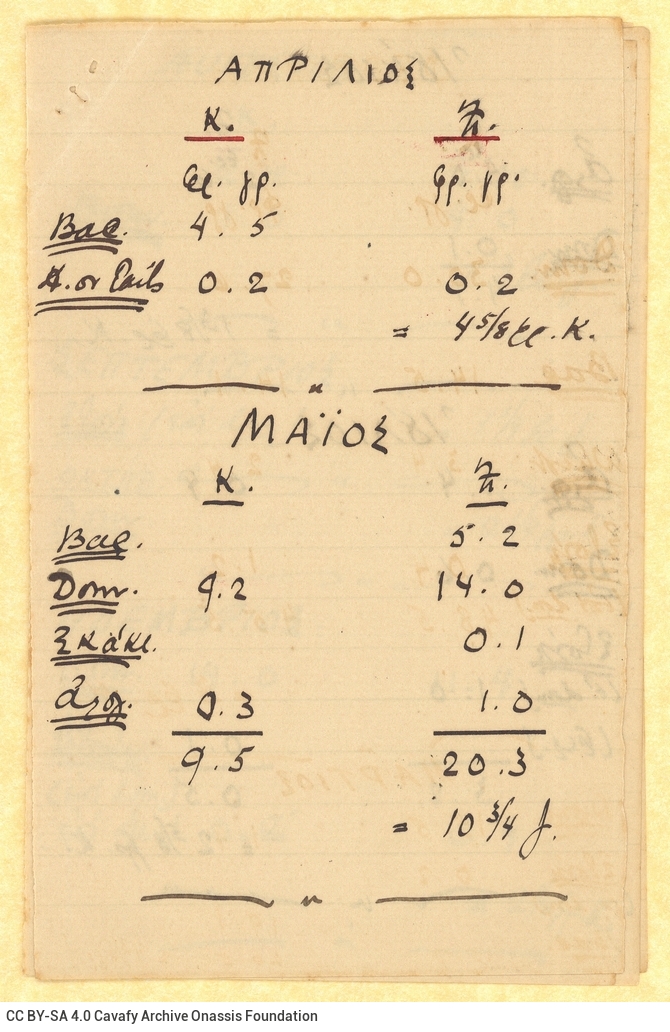 ΑΠΡΙΛΙΟΣ
Κ. Π.
γρ. γρ.
Βας. 4.5
0.2 0.2
= 4 5/8 Κ.
"
ΜΑΪΟΣ
Κ. Π.
Βας. 5.2
Dom. 9.2 14.0
Σκάκι. 0.1
0.3 1.0
9.5 20.3
= 10 3/4
"
CC BY-SA 4.0 Cavafy Archive Onassis Foundation